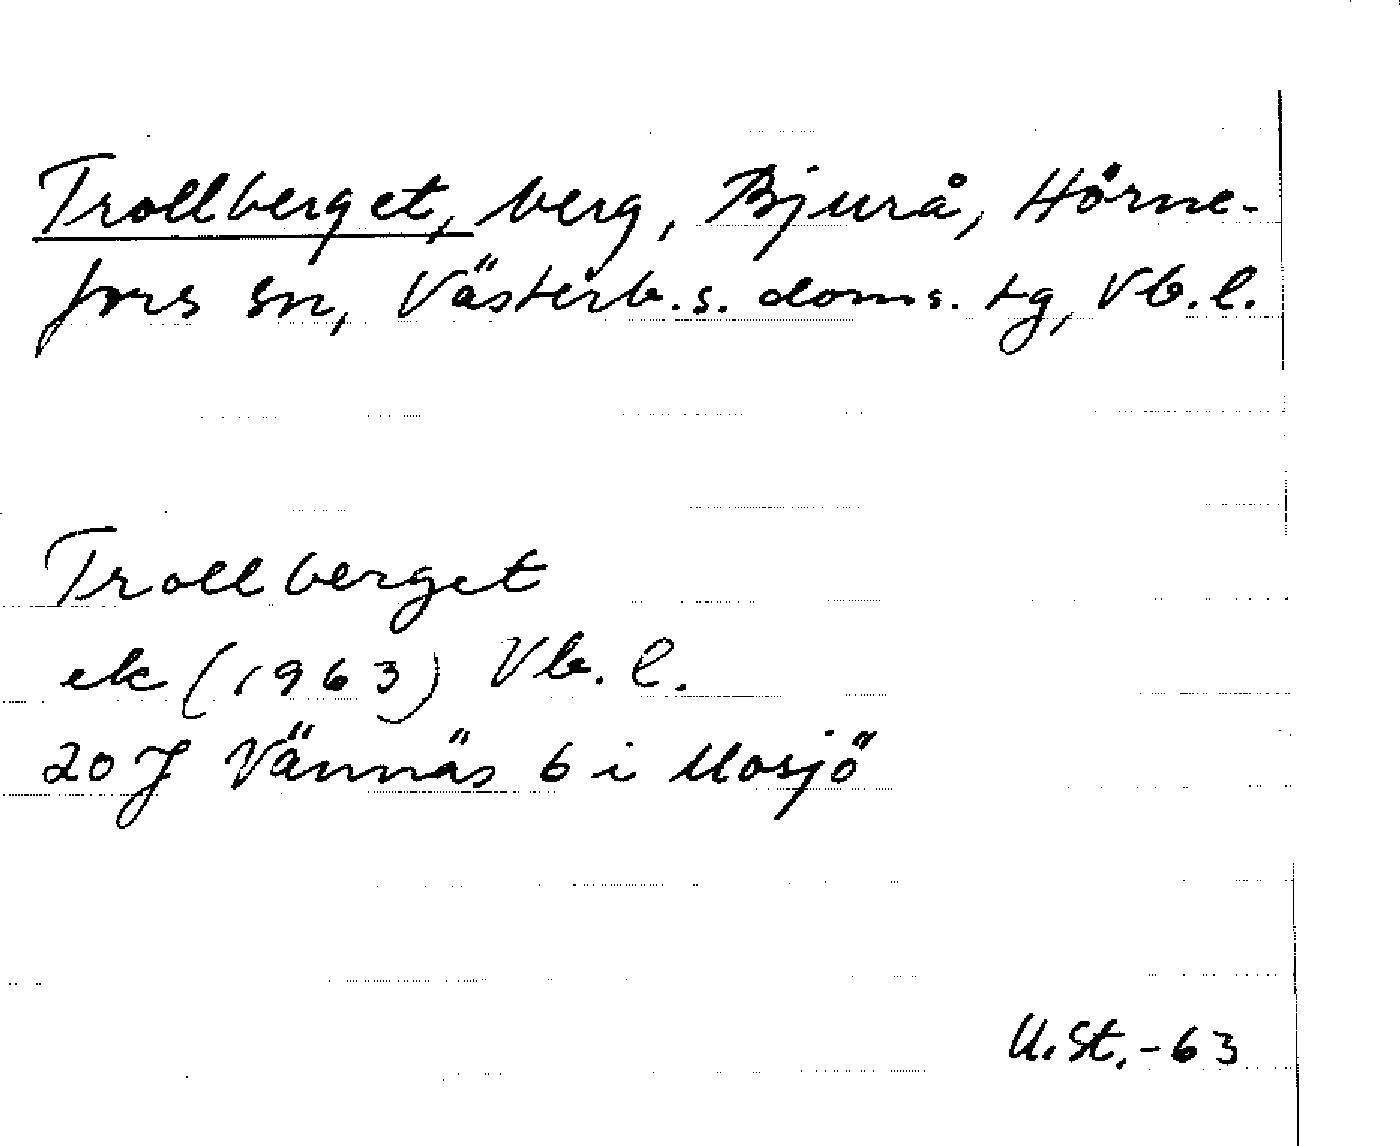 Trollberget, berg, Bjurå, Hörne-
fors sn, Västerb. s. doms. tg, Vb. l.
Trollberget
ek (1963) Vb. l.
20 J Vännäs 6 i Mosjö
U. St. -63